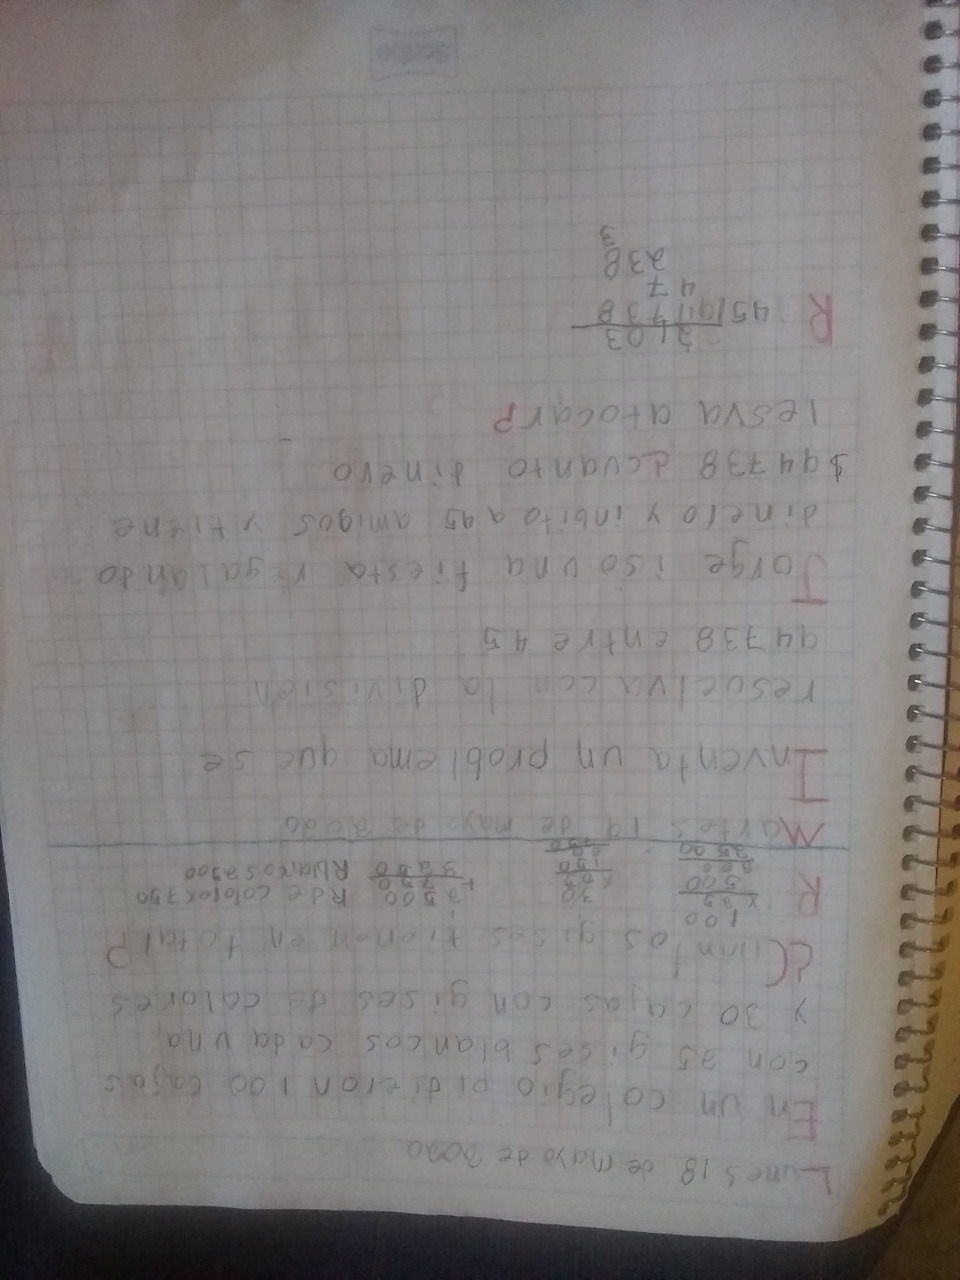 Lunes 18 de mayo de 2020
En un colegio pidieron 100 cajas
con 25 gises blancos cada una
y 30 cajas con gises de colores
¿Cuantos gises tienen en total?
R 100 30 2500 R de colores 750
x25 x25 +750 R blancos 2500
500 150 3250
200
2500 750
Martes 19 de mayo de 2020
Inventa un problema que se
resuelva con la división
94738 entre 45
Jorge iso una fiesta regalando
dinero y inbito a 45 amigos y tiene
$94738 ¿cuanto dinero
les va a tocar?
2103
R 45 94738
47
238
3
Scribe